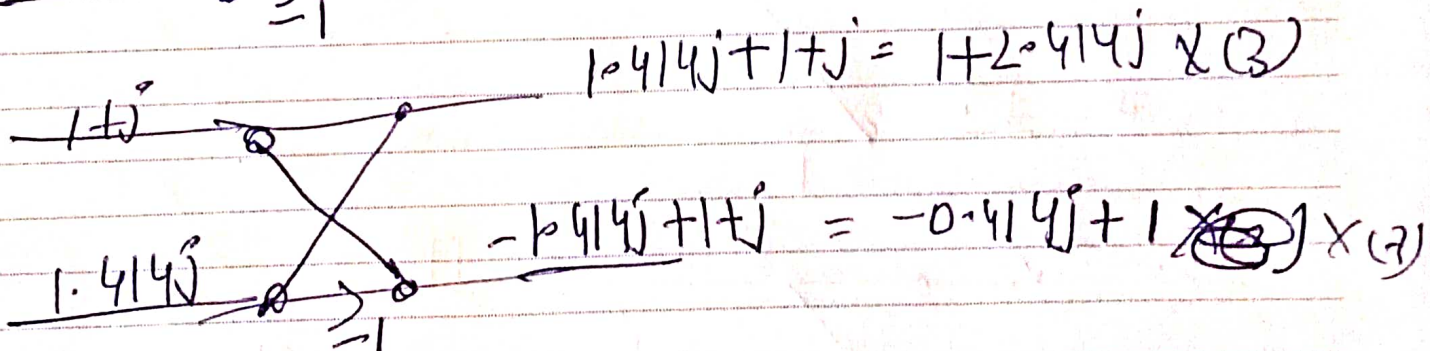 -1
1.414j+1+j = 1+2.414j X(3)
1+j
-1.414j+1+j = -0.414j+1 X(7)
1.414j
-1